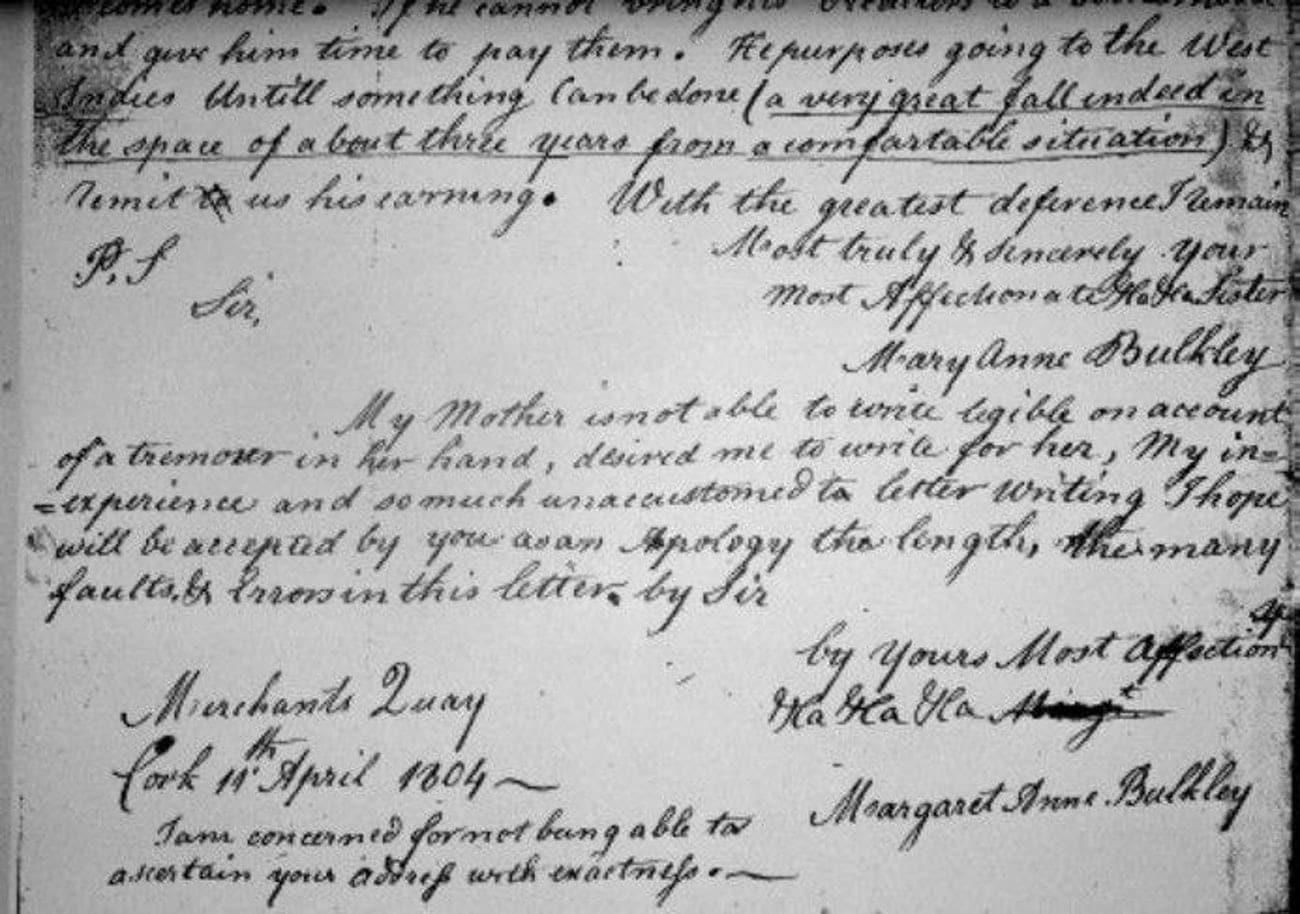 comes home. If he cannot bring his Creditors to a
and give him time to pay them. He purposes going to the West
Indies Untill something Can be done (a very great fall indeed in
the space of about three years from a comfartable situation) &
remit to us his earning. With the greatest deference I remain
Most truly & sincerely your
P, S
most Affectionate &ca &ca Sister
Sir,
Mary Anne Bulkley
My Mother is not able to write legible on account
of a tremour in her hand, desired me to write for her, My in=
=experience and so much unaccustomed to letter writing I hope
will be accepted by you as an Apology the length, the many
faults, & Errors in this letter. by Sir
by yours Most Affection
Merchants Quay
&ca &ca &ca
Cork 11th April 1804
Margaret Anne Bulkley
I am concerned for not being able to
ascertain your address with exactness.